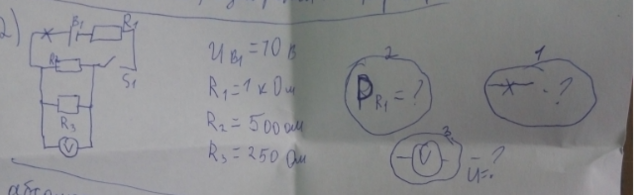 2)
B1
R1
R2
S1
R3
V
U B1 = 10 В
R1 = 1 кОм
R2 = 500 ом
R3 = 250 Ом
2
P R1 = ?
1
-x- - ?
3
V - U = ?